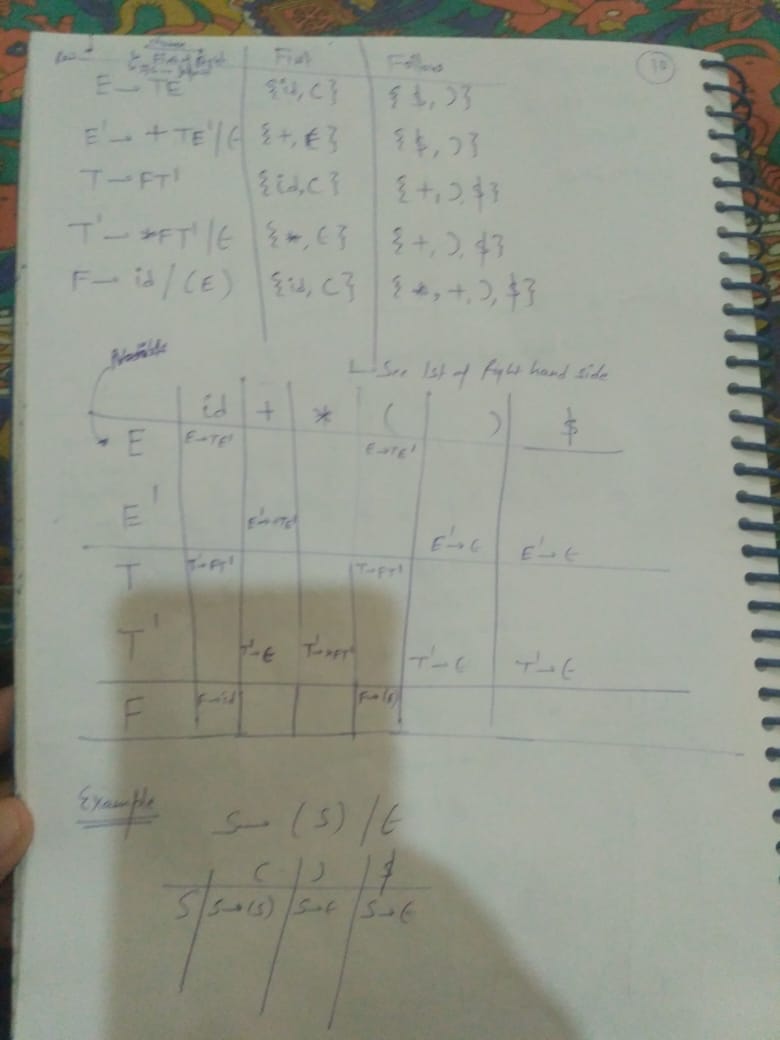 First Follow 30
E → TE' {id, (} {$, )}
E' → +TE'/ϵ {+, ϵ} {$, )}
T → FT' {id, (} {+, ), $}
T' → *FT'/ϵ {*, ϵ} {+, ), $}
F → id/(E) {id, (} {*, +, ), $}
See 1st of Right hand side
id + * ( ) $
E E→TE' E→TE'
E' E'→+TE' E'→ϵ E'→ϵ
T T→FT' T→FT'
T' T'→ϵ T'→*FT' T'→ϵ T'→ϵ
F F→id F→(E)
Example
S → (S)/ϵ
( ) $
S S→(S) S→ϵ S→ϵ